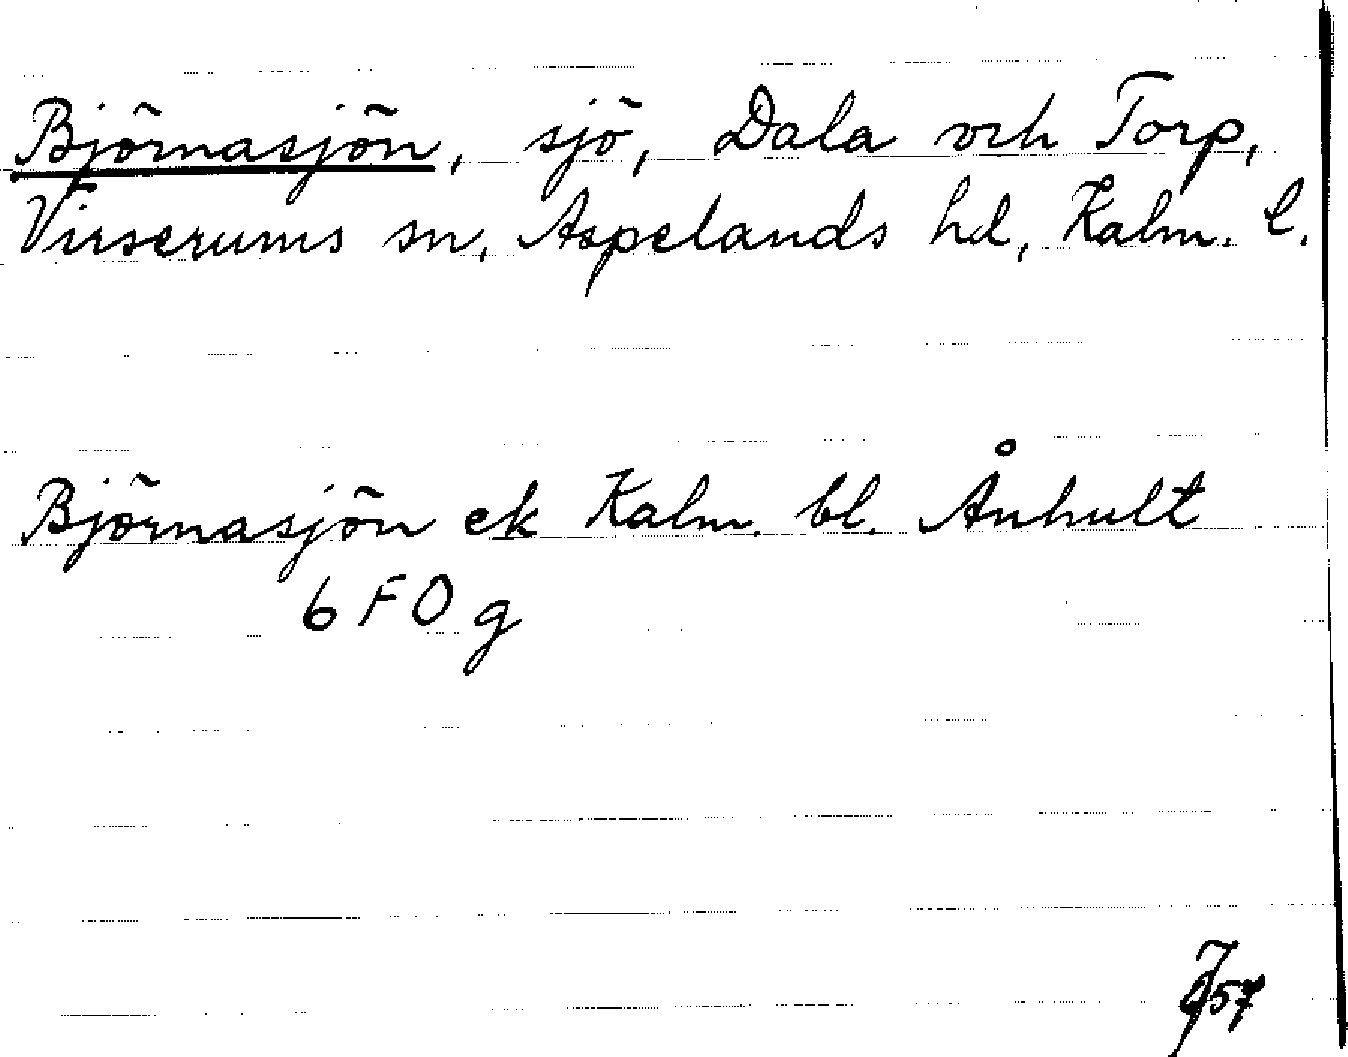 Björnasjön, sjö, Dala och Torp,
Virserums sn, Aspelands hd, Kalm. l.
Björnasjön ek Kalm. bl. Ånhult
6 F O g